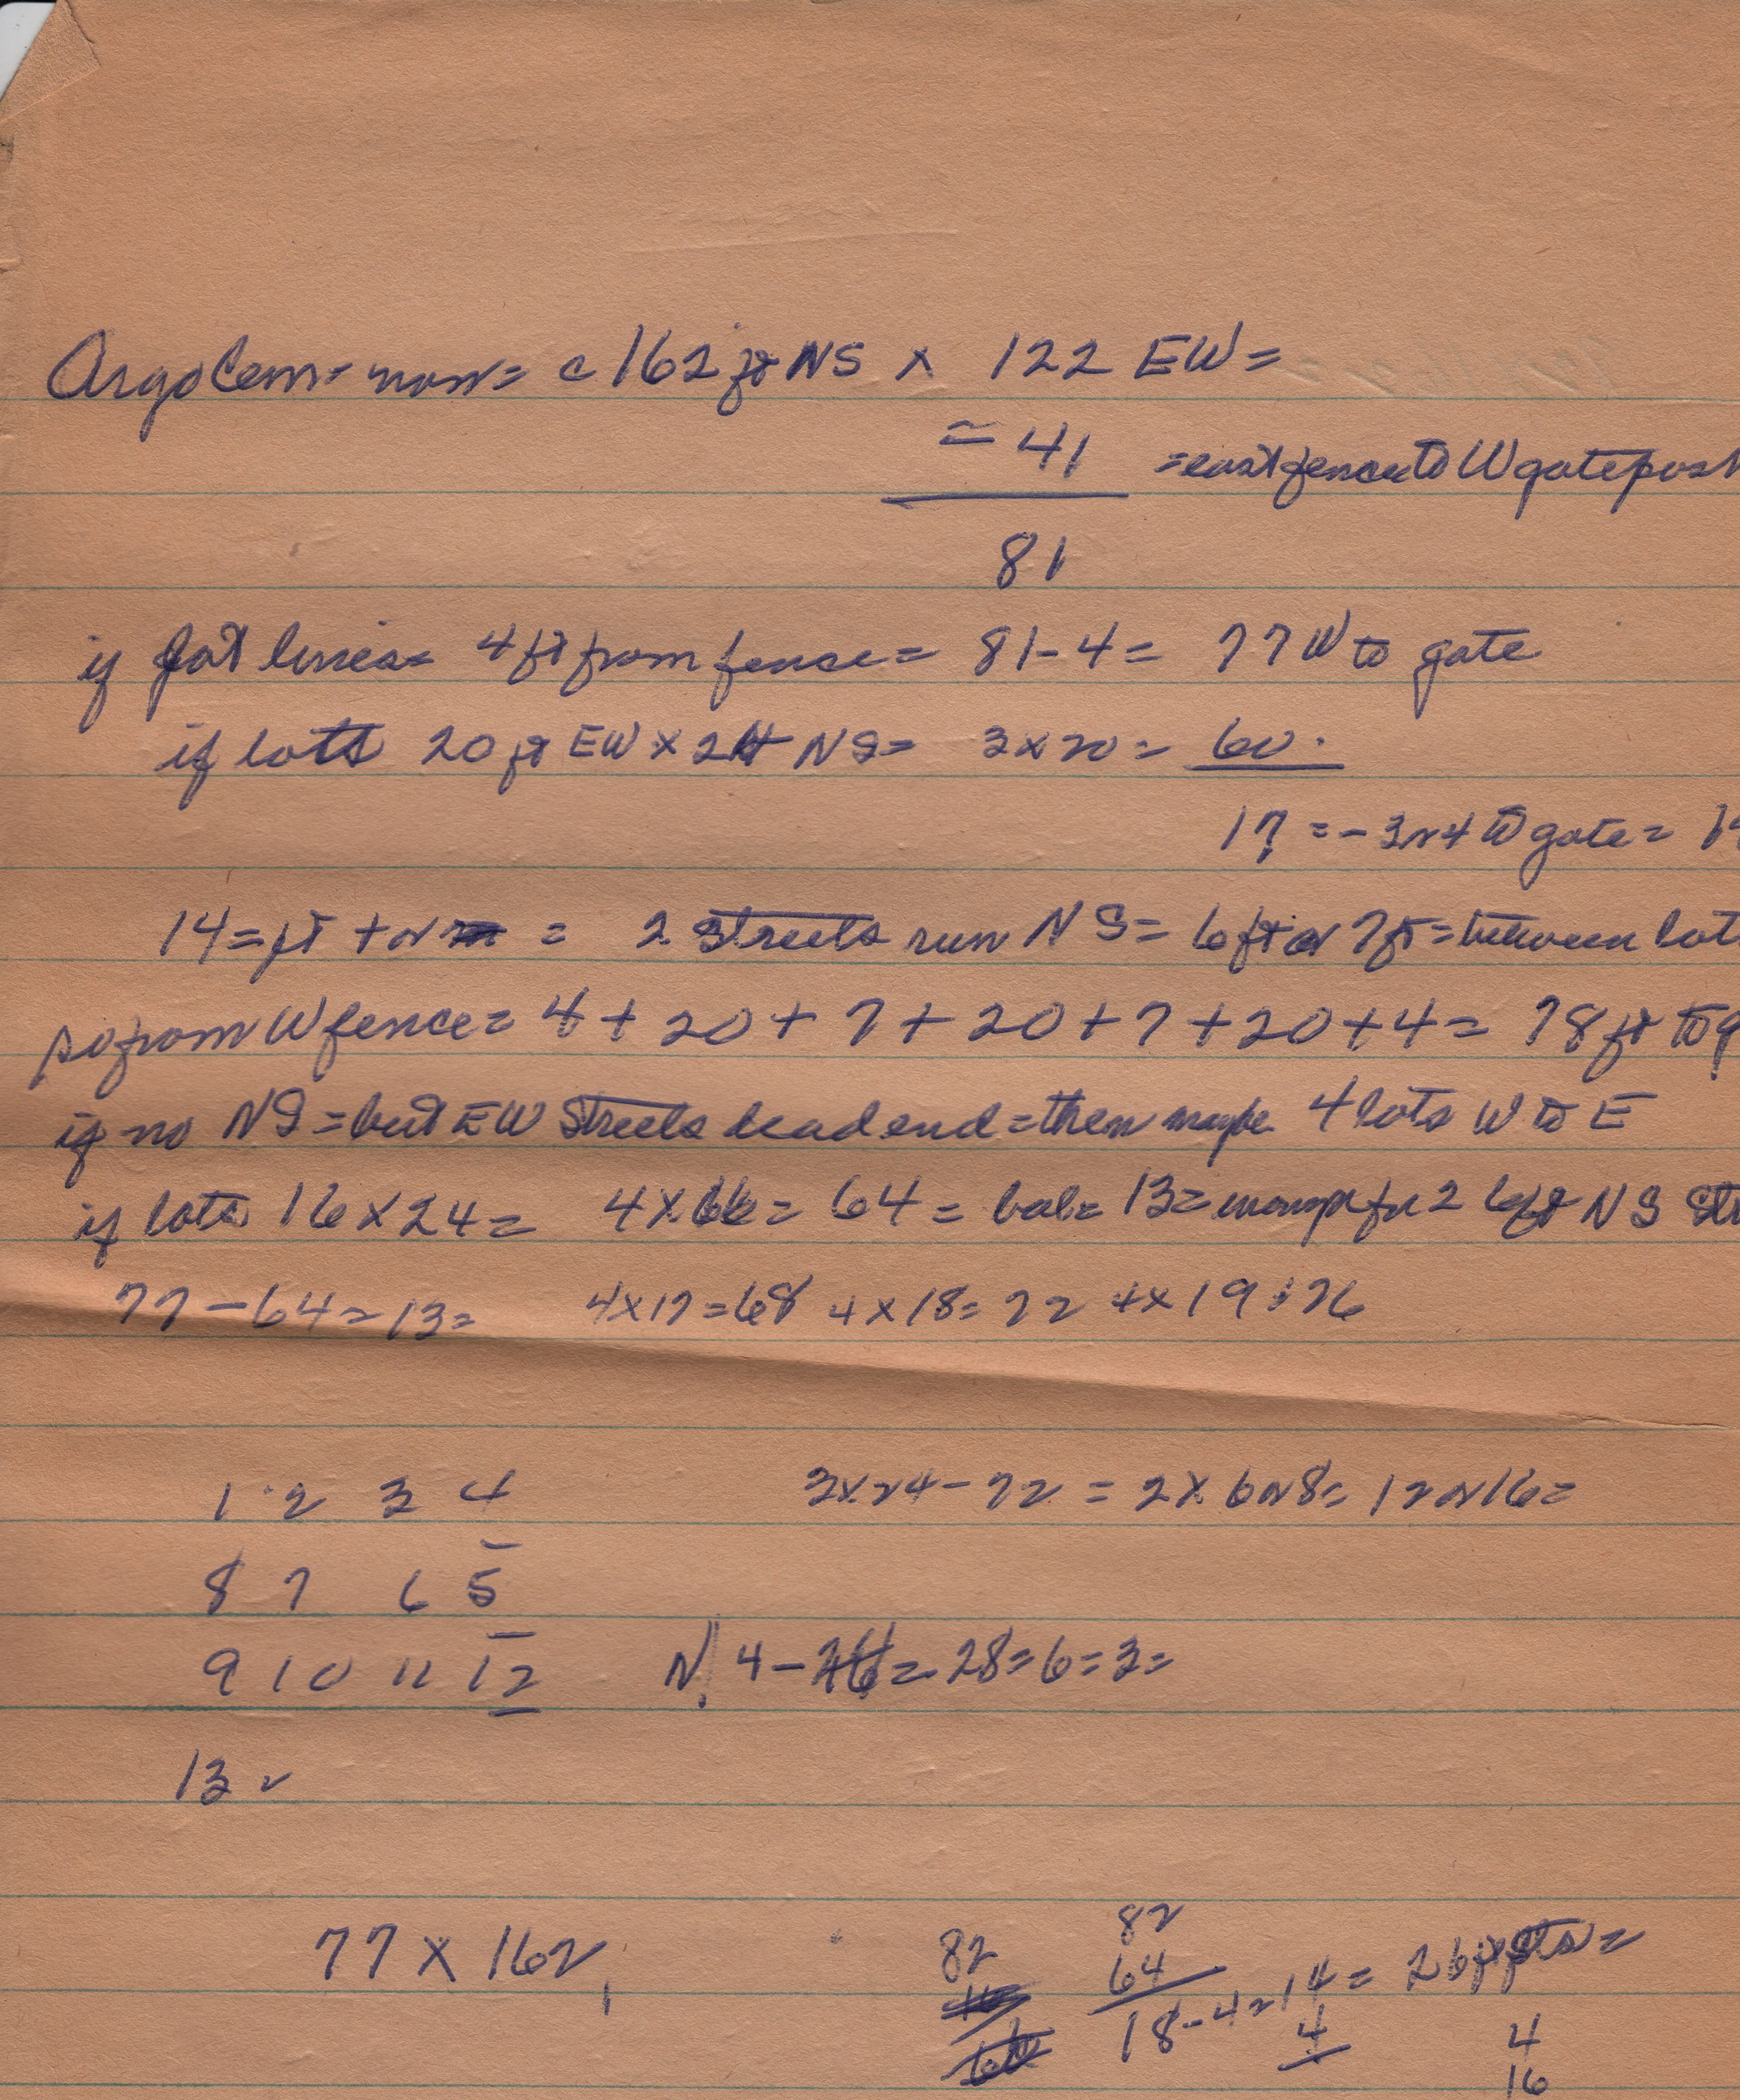 Argo Cem = now = c 162 ft NS x 122 EW =
= 41 = east fence to W gatepost
81
if lot lines = 4 ft from fence = 81 - 4 = 77 W to gate
if lots 20 ft EW x 24 NS = 3 x 20 = 60.
17 = - 3 or 4 W gate = 14
14 = ft + or = 2 streets run NS = 6 ft or 7 ft = between lots
so from W fence = 4 + 20 + 7 + 20 + 7 + 20 + 4 = 78 ft to g
if no NS = but EW Streets dead end = then maybe 4 lots W to E
if lots 16 x 24 = 4 x 16 = 64 = bal = 13 = enough for 2 6 ft NS Str
77 - 64 = 13 = 4 x 17 = 68 4 x 18 = 72 4 x 19 = 76
1 2 3 4 3 x 24 - 72 = 2 x 6 or 8 = 12 or 16 =
8 7 6 5
9 10 11 12 N 4 - 24 = 28 = 6 = 3 =
13
77 x 162
82 82
64
18 - 4 = 14 = 2 6 ft sts =
4 4
16